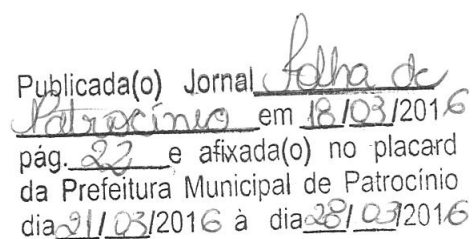 Publicada(o) Jornal Folha de
Patrocínio em 18/03/2016
pág. 22 e afixada(o) no placard
da Prefeitura Municipal de Patrocínio
dia 21/03/2016 à dia 28/03/2016